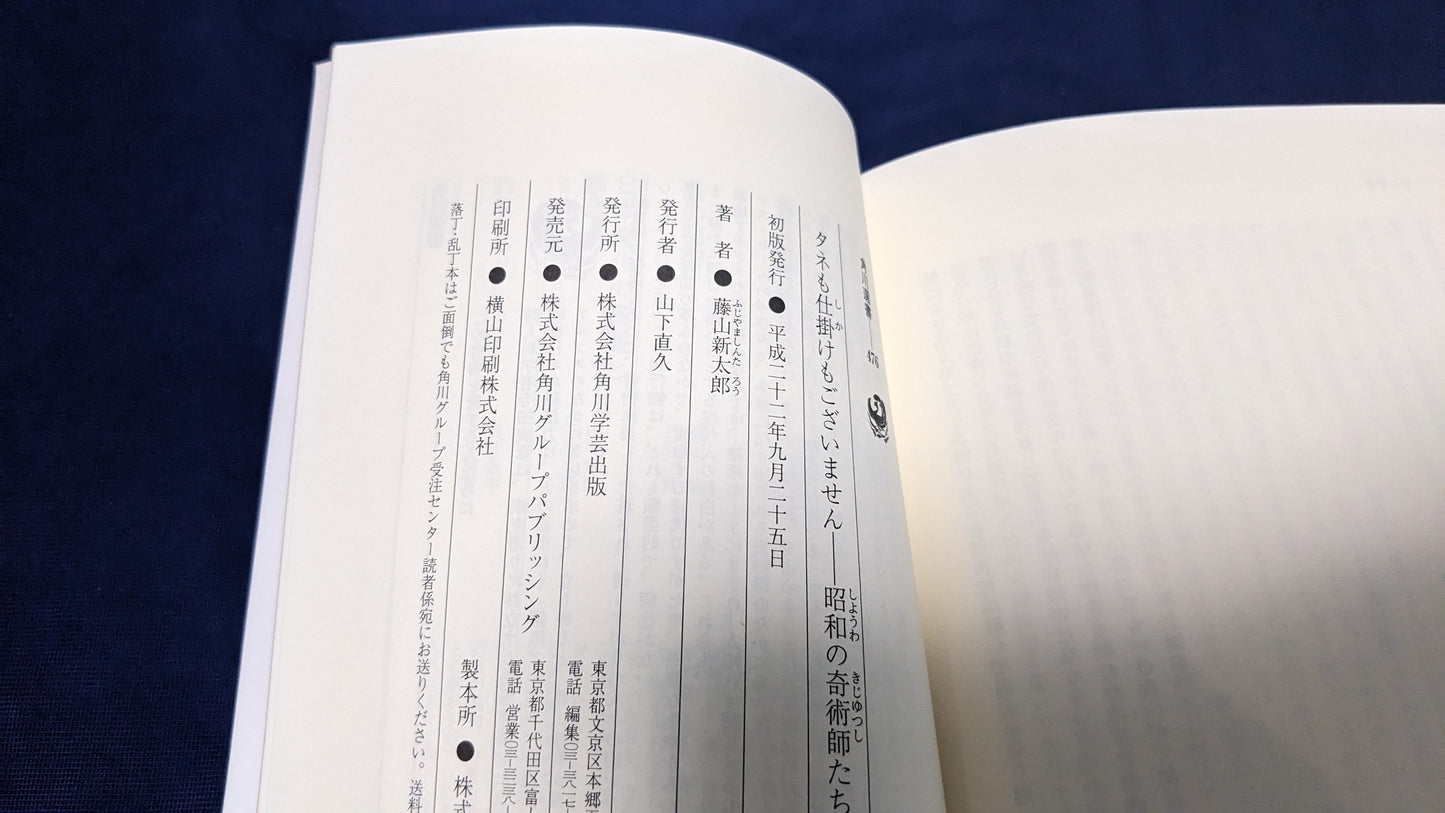 角川選書 476
タネも仕掛けもございません――昭和の奇術師たち
しか
しようわ
きじゆつし
初版発行●平成二十二年九月二十五日
著 者●藤山新太郎
ふじやましんた ろう
発行者●山下直久
発行所●株式会社角川学芸出版
東京都文京区本郷
電話 編集〇三―三八一七―
発売元●株式会社角川グループパブリッシング
東京都千代田区富
電話 営業〇三―三二三八―
印刷所●横山印刷株式会社
製本所●株式
落丁・乱丁本はご面倒でも角川グループ受注センター読者係宛にお送りください。送料